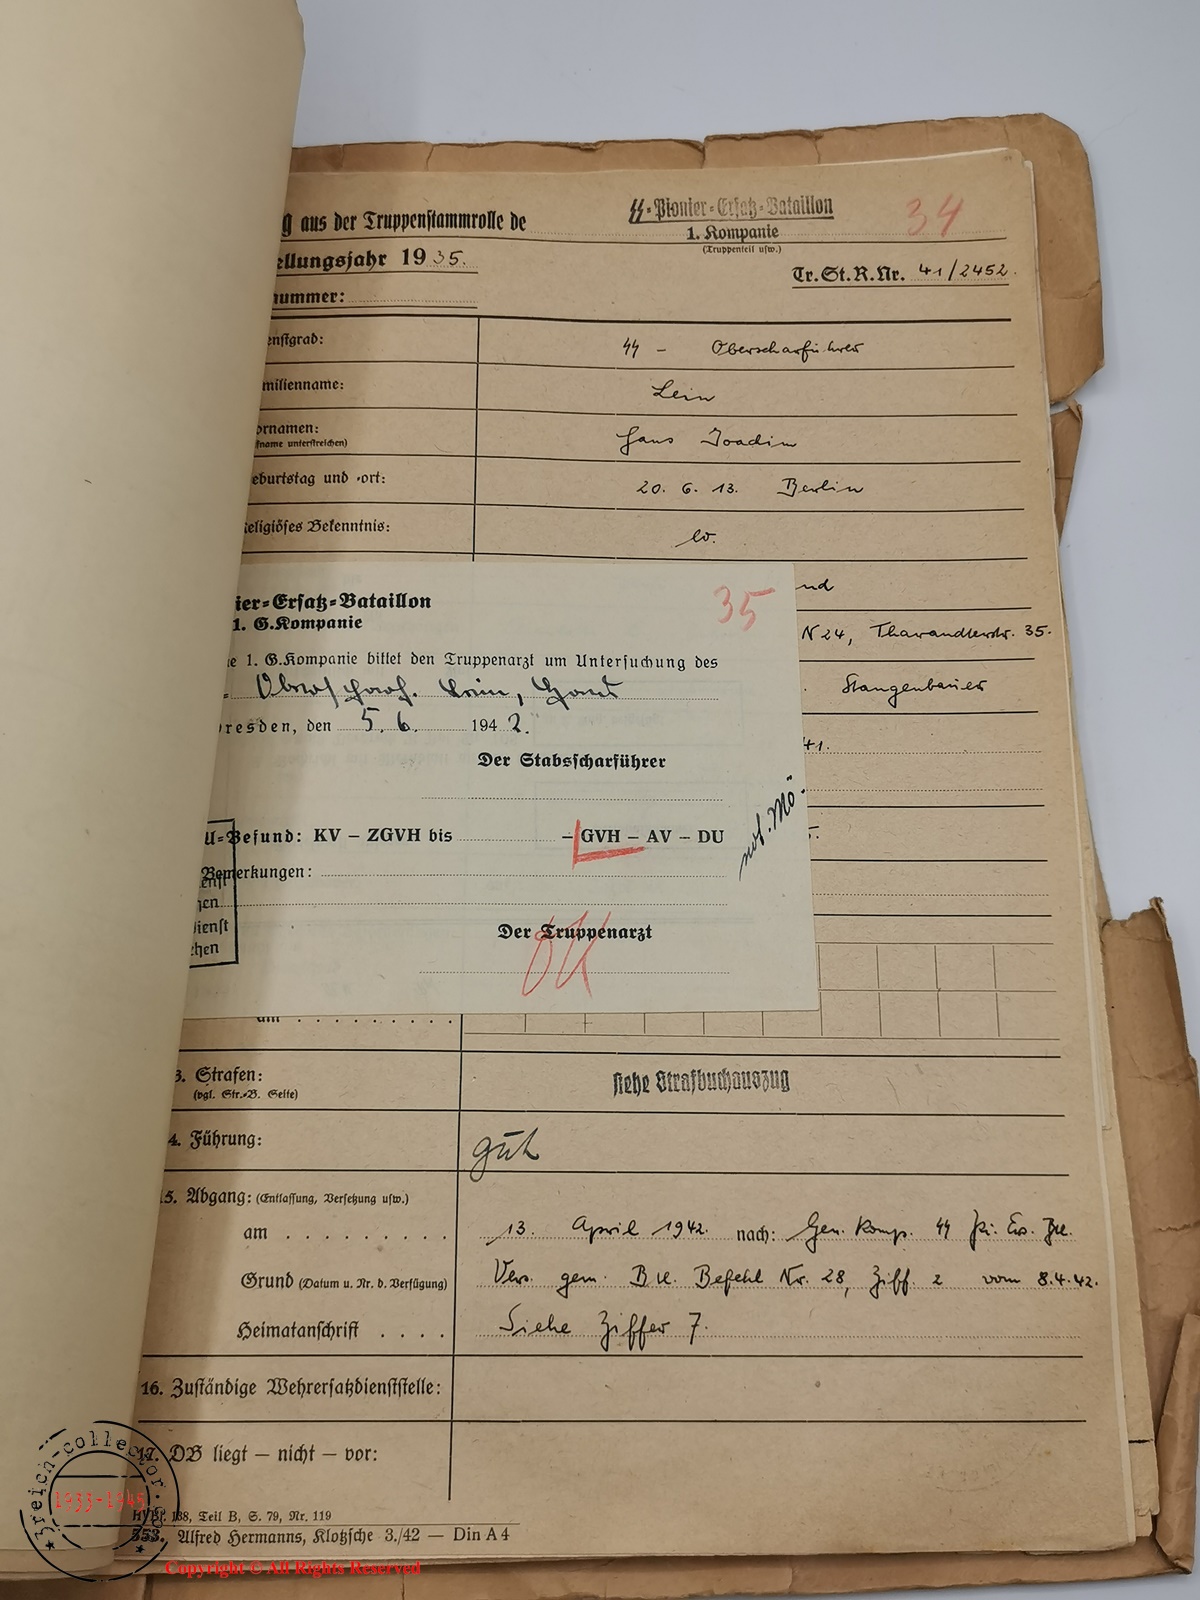 g aus der Truppenstammrolle de
SS-Pionier-Ersatz-Bataillon
34
1. Kompanie
(Truppenteil usw.)
ellungsjahr 1935.
Tr.St.R.Nr. 41/2452.
nummer:
enstgrad: SS - Oberscharführer
milienname: Lein
ornamen: Hans Joachim
fname unterstreichen)
eburtstag und -ort: 20. 6. 13. Berlin
eligiöses Bekenntnis: ev.
nd
N 24, Tharandterstr. 35.
Stangenbauer
41.
5.
ier-Ersatz-Bataillon
35
1. G.Kompanie
ie 1. G.Kompanie bittet den Truppenarzt um Untersuchung des
Oberscharf. Lein, Hans
resden, den 5. 6. 1942.
Der Stabsscharführer
U-Befund: KV – ZGVH bis – GVH – AV – DU
Bemerkungen:
enst
gen
ienst
chen
Der Truppenarzt
am
3. Strafen: siehe Strafbuchauszug
(vgl. Str.-B. Seite)
4. Führung: gut
15. Abgang: (Entlassung, Versetzung usw.)
am 13. April 1942. nach: Gen. Komp. SS Pi. Ers. Btl.
Grund (Datum u. Nr. d. Verfügung) Vers. gem. Btl. Befehl Nr. 28, Ziff. 2 vom 8.4.42.
Heimatanschrift Siehe Ziffer 7.
16. Zuständige Wehrersatzdienststelle:
17. DB liegt – nicht – vor:
138, Teil B, S. 79, Nr. 119
553. Alfred Hermanns, Klotzsche 3./42 — Din A 4
3reich-collector.co
1933-1945
Copyright © All Rights Reserved